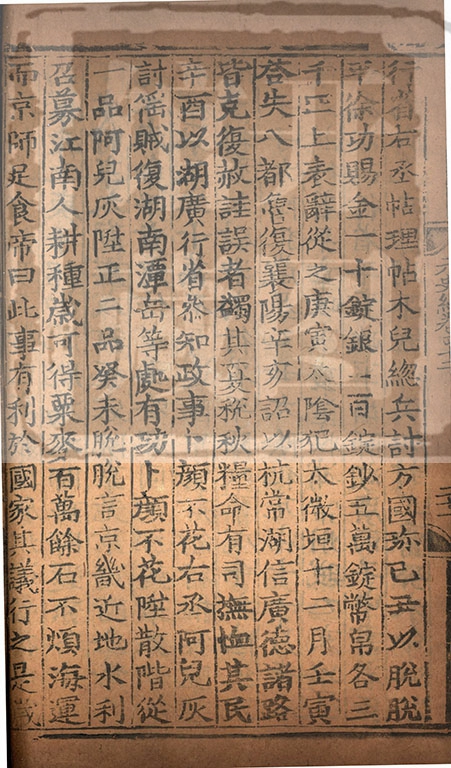 行省右丞帖理帖木兒緫兵討方國珎己丑以脫脫
平徐功賜金一十錠銀一百錠鈔五萬錠幣帛各三
千疋上表辭從之庚寅太陰犯太微垣十一月壬寅
荅失八都魯復襄陽辛亥詔以杭常湖信廣德諸路
皆克復赦詿誤者蠲其夏稅秋糧命有司撫恤其民
辛酉以湖廣行省叅知政事卜顏不花右丞阿兒灰
討傜賊復湖南潭岳等處有功卜顏不花陞散階從
一品阿兒灰陞正二品癸未脫脫言京畿近地水利
召募江南人耕種歲可得粟麥百萬餘石不煩海運
而京師足食帝曰此事有利於國家其議行之是歲